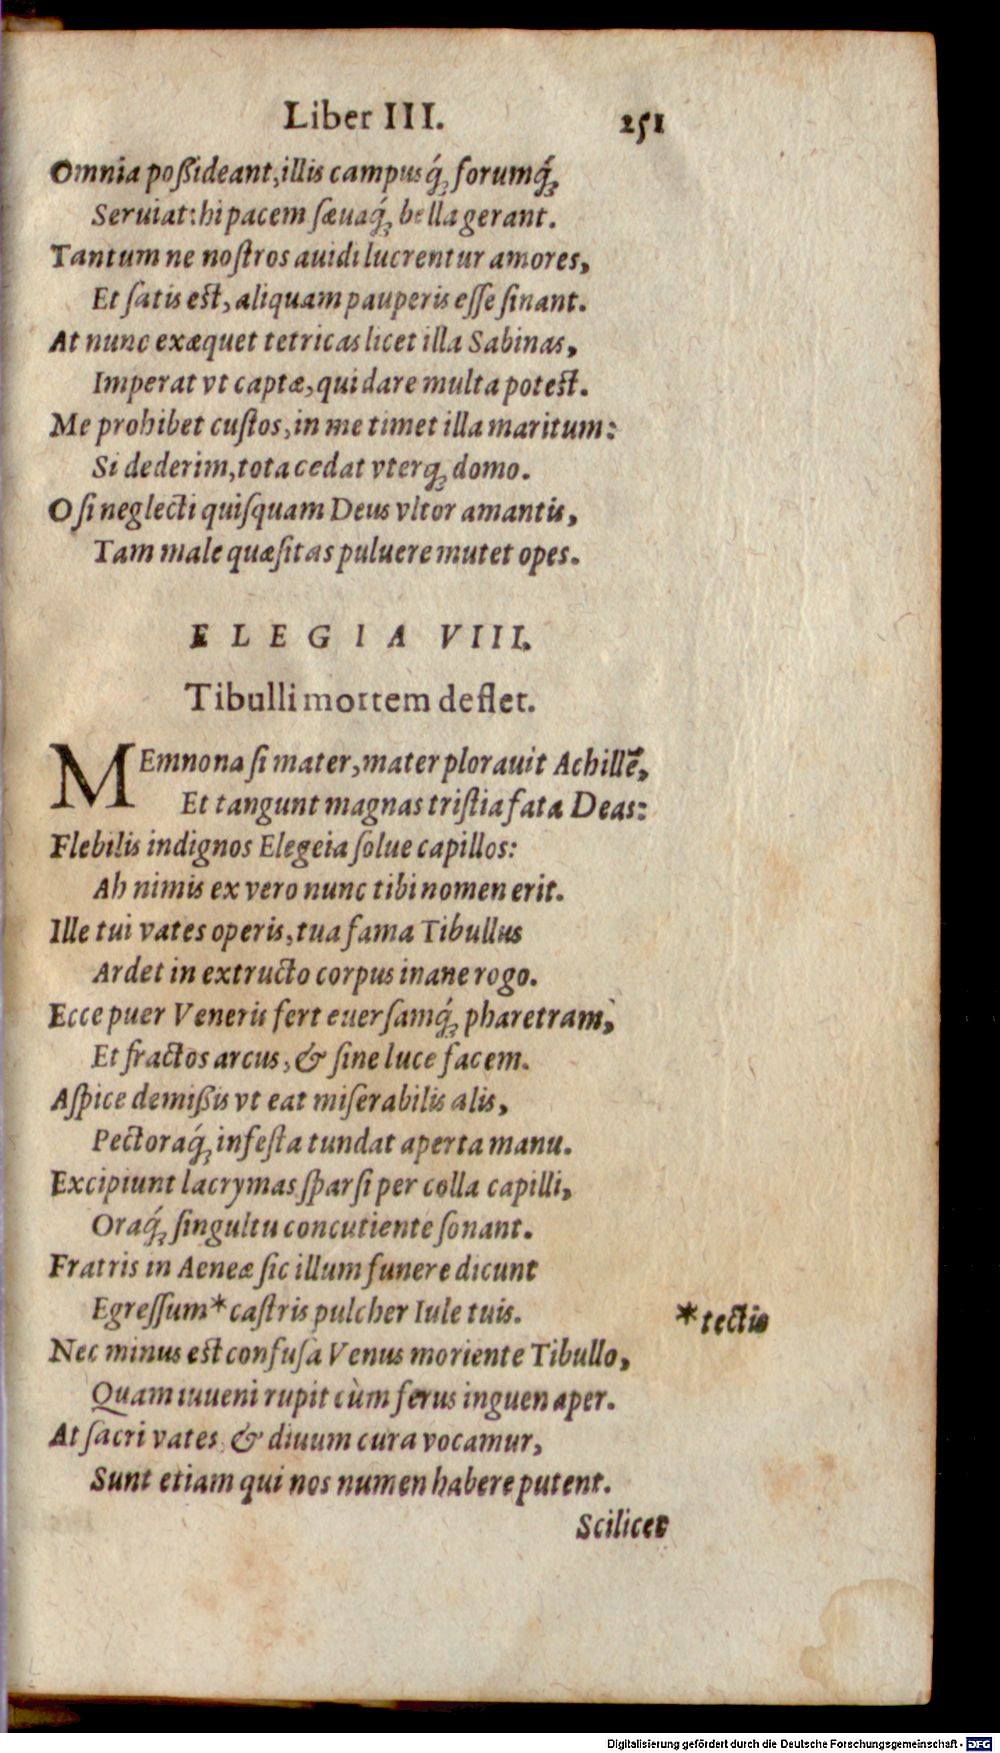 Liber III. 251
Omnia poßideant, illis campusq́; forumq́;
Seruiat: hi pacem sæuaq́; bella gerant.
Tantum ne nostros auidi lucrentur amores,
Et satis est, aliquam pauperis esse sinant.
At nunc exæquet tetricas licet illa Sabinas,
Imperat vt captæ, qui dare multa potest.
Me prohibet custos, in me timet illa maritum:
Si dederim, tota cedat vterq; domo.
O si neglecti quisquam Deus vltor amantis,
Tam male quæsitas puluere mutet opes.
ELEGIA VIII.
Tibulli mortem deflet.
MEmnona si mater, mater plorauit Achillē,
Et tangunt magnas tristia fata Deas:
Flebilis indignos Elegeia solue capillos:
Ah nimis ex vero nunc tibi nomen erit.
Ille tui vates operis, tua fama Tibullus
Ardet in extructo corpus inane rogo.
Ecce puer Veneris fert euersamq́; pharetram,
Et fractos arcus, & sine luce facem.
Aspice demißis vt eat miserabilis alis,
Pectoraq́; infesta tundat aperta manu.
Excipiunt lacrymas sparsi per colla capilli,
Oraq́; singultu concutiente sonant.
Fratris in Aeneæ sic illum funere dicunt
Egressum* castris pulcher Iule tuis. *tectis
Nec minus est confusa Venus moriente Tibullo,
Quam iuueni rupit cùm ferus inguen aper.
At sacri vates, & diuum cura vocamur,
Sunt etiam qui nos numen habere putent.
Scilicet
Digitalisierung gefördert durch die Deutsche Forschungsgemeinschaft - DFG